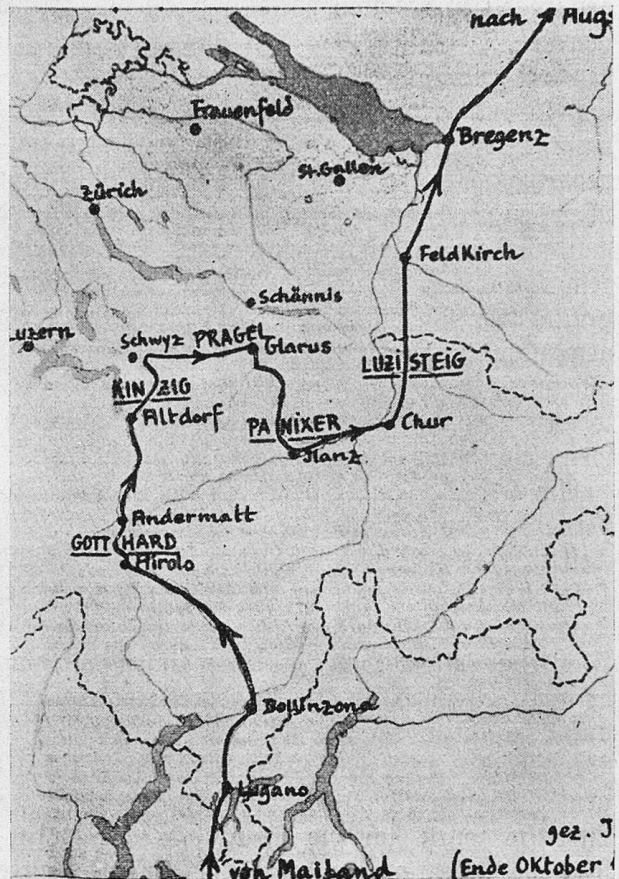 nach Augs
Frauenfeld
Bregenz
St.Gallen
Zürich
FeldKirch
Schännis
Luzern
Schwyz PRAGEL
Glarus
LUZISTEIG
KINZIG
Altdorf
PANIXER
Chur
Ilanz
Andermatt
GOTTHARD
Airolo
Bellinzona
Lugano
gez. J
von Mailand
(Ende Oktober